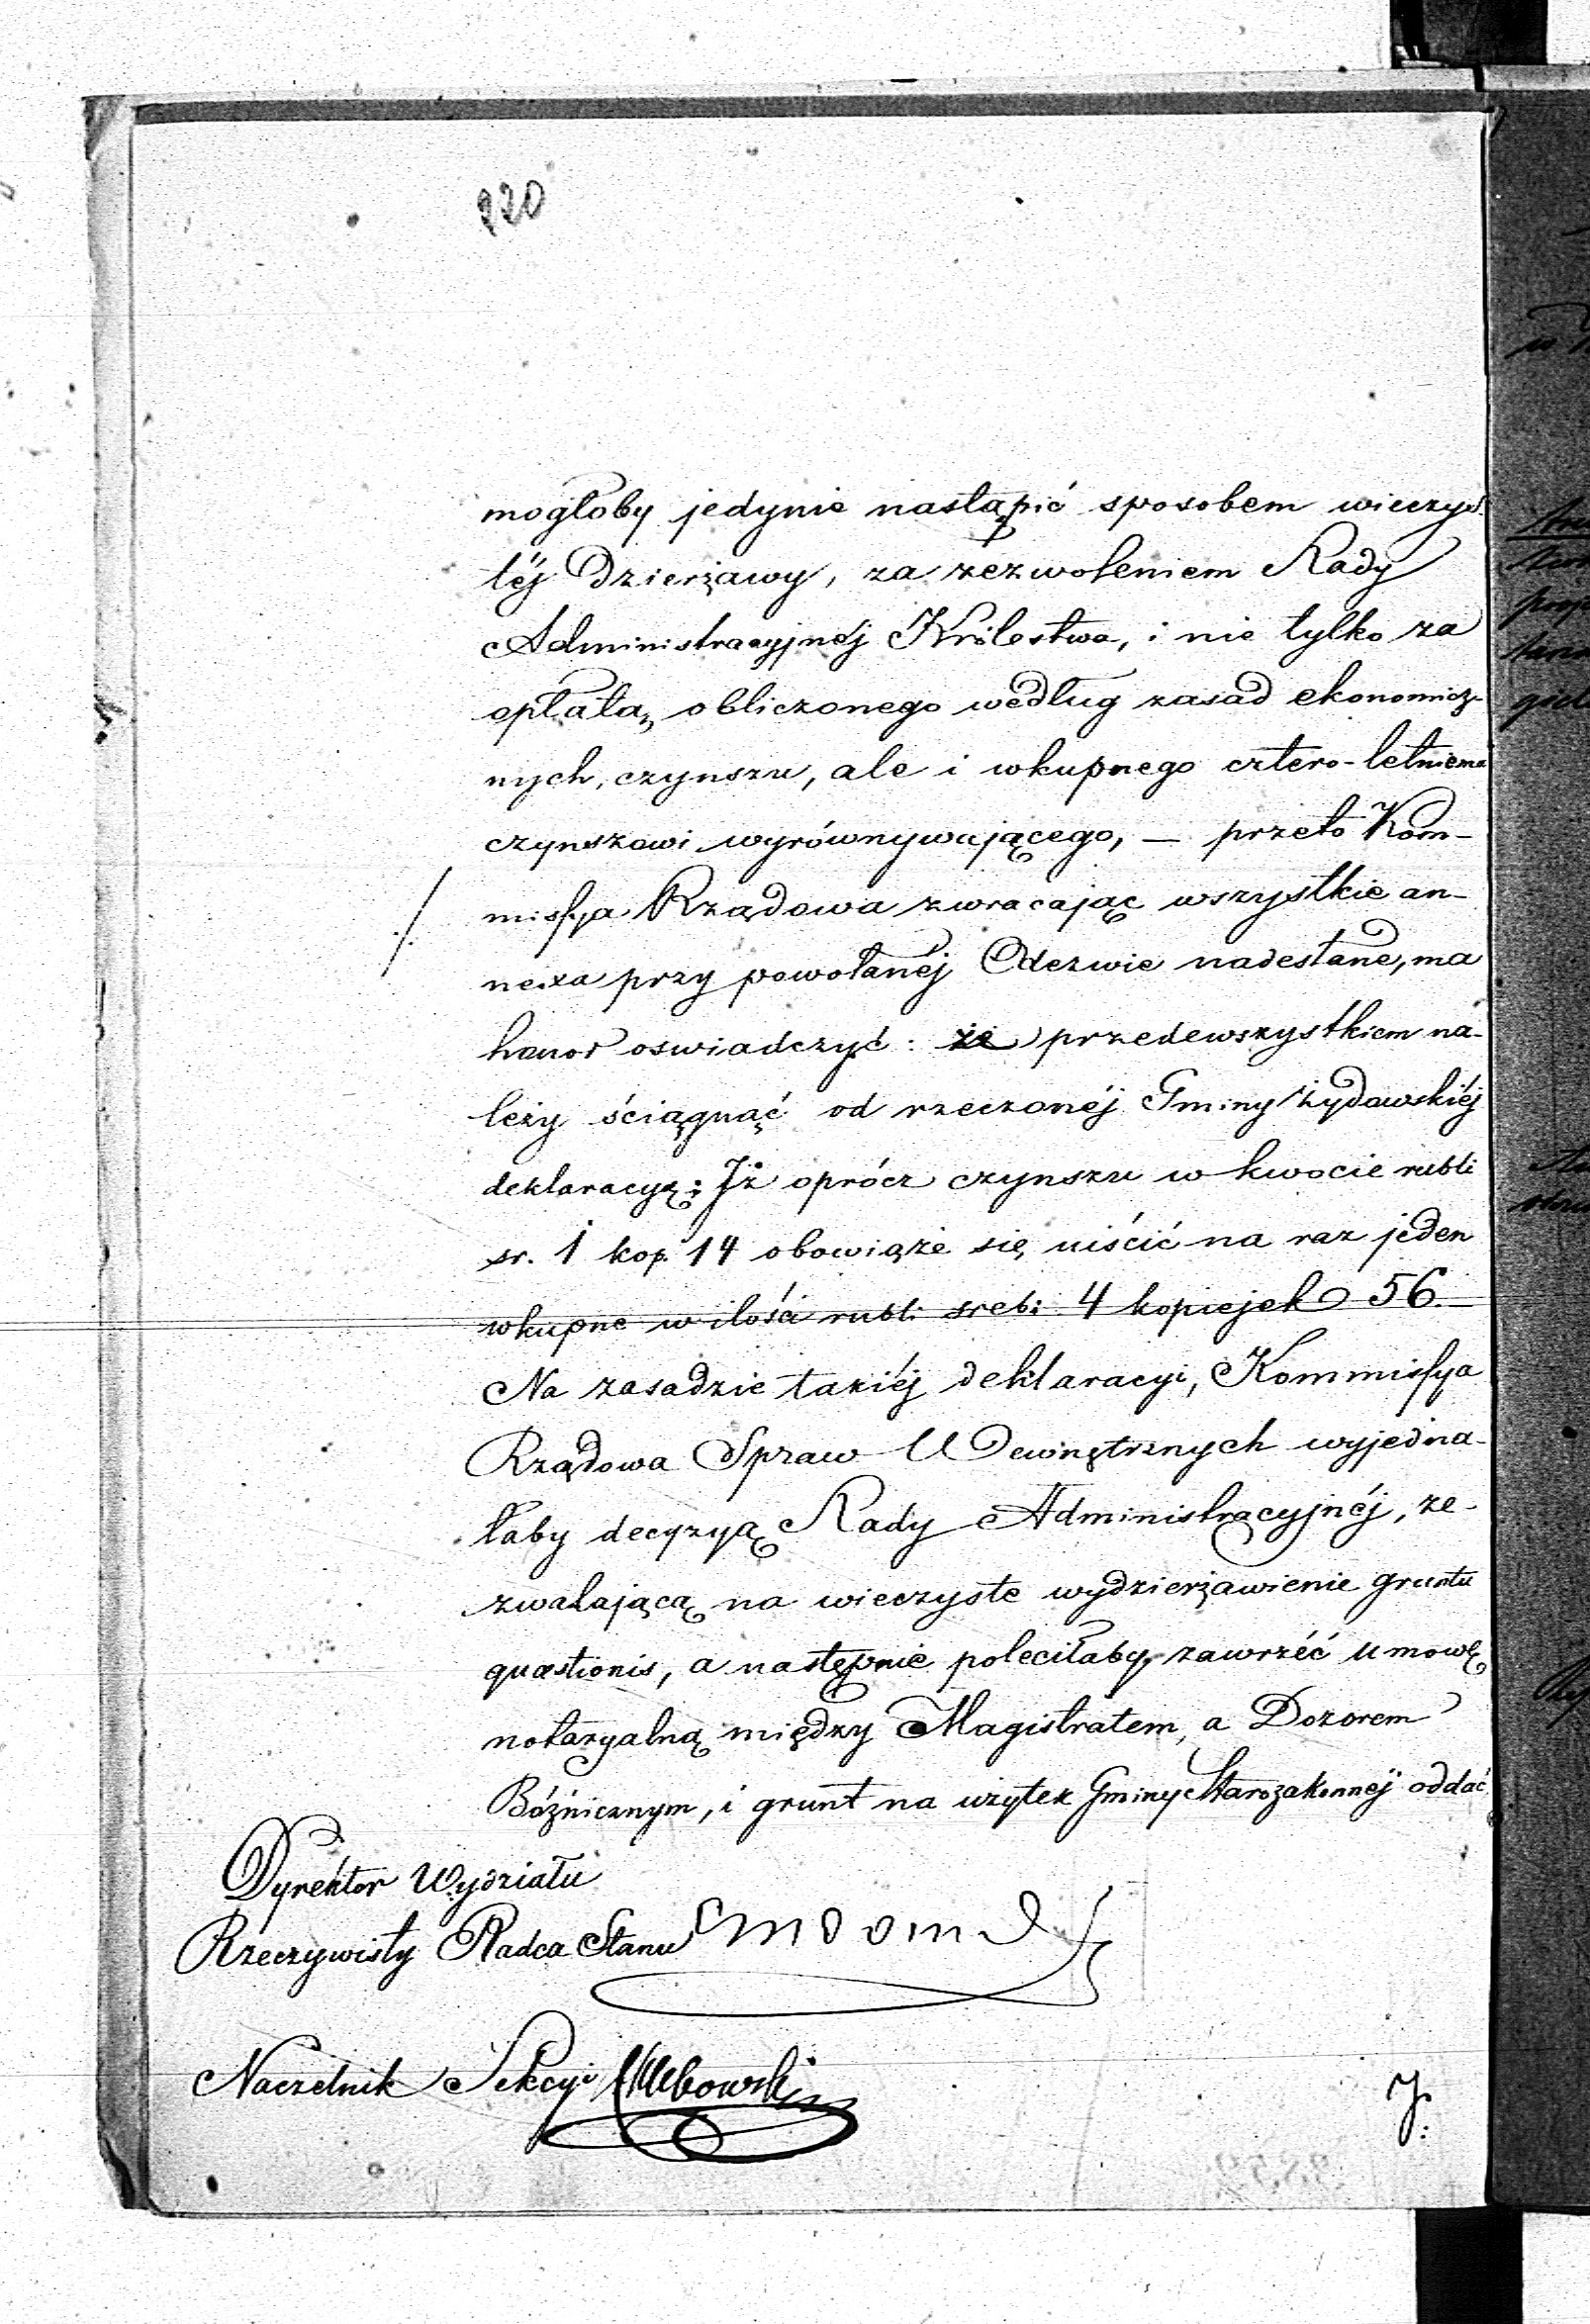 220
mogłoby jedynie nastąpić sposobem wieczys-
téj Dzierżawy, za zezwoleniem Rady
Administracyjnéj Królestwa, i nie tylko za
opłatą, obliczonego według zasad ekonomicz-
nych, czynszu, ale i wkupnego cztero-letniemu
czynszowi wyrównywającego, — przeto Kom-
missya Rządowa zwracając wszystkie an-
nexa przy powołanéj Odezwie nadesłane, ma
honor oswiadczyć: że przedewszystkiem na-
leży ściągnąć od rzeczonéj Gminy Żydowskiéj
deklaracyą: Iż oprócz czynszu w kwocie rubli
sr. 1 kop. 14 obowiąże się uiścić na raz jeden
wkupne w ilości rubli srebr. 4 kopiejek 56. —
Na zasadzie takiéj deklaracyi, Kommissya
Rządowa Spraw Wewnętrznych wyjedna-
łaby decyzyą Rady Administracyjnéj, ze-
zwalającą na wieczyste wydzierżawienie gruntu
quæstionis, a następnie poleciłaby, zawrzéć umowę
notaryalną między Magistratem, a Dozorem
Bóżnicznym, i grunt na użytek Gminy Starozakonnéj oddać.
Dyrektor Wydziału
Rzeczywisty Radca Stanu
Naczelnik Sekcyi